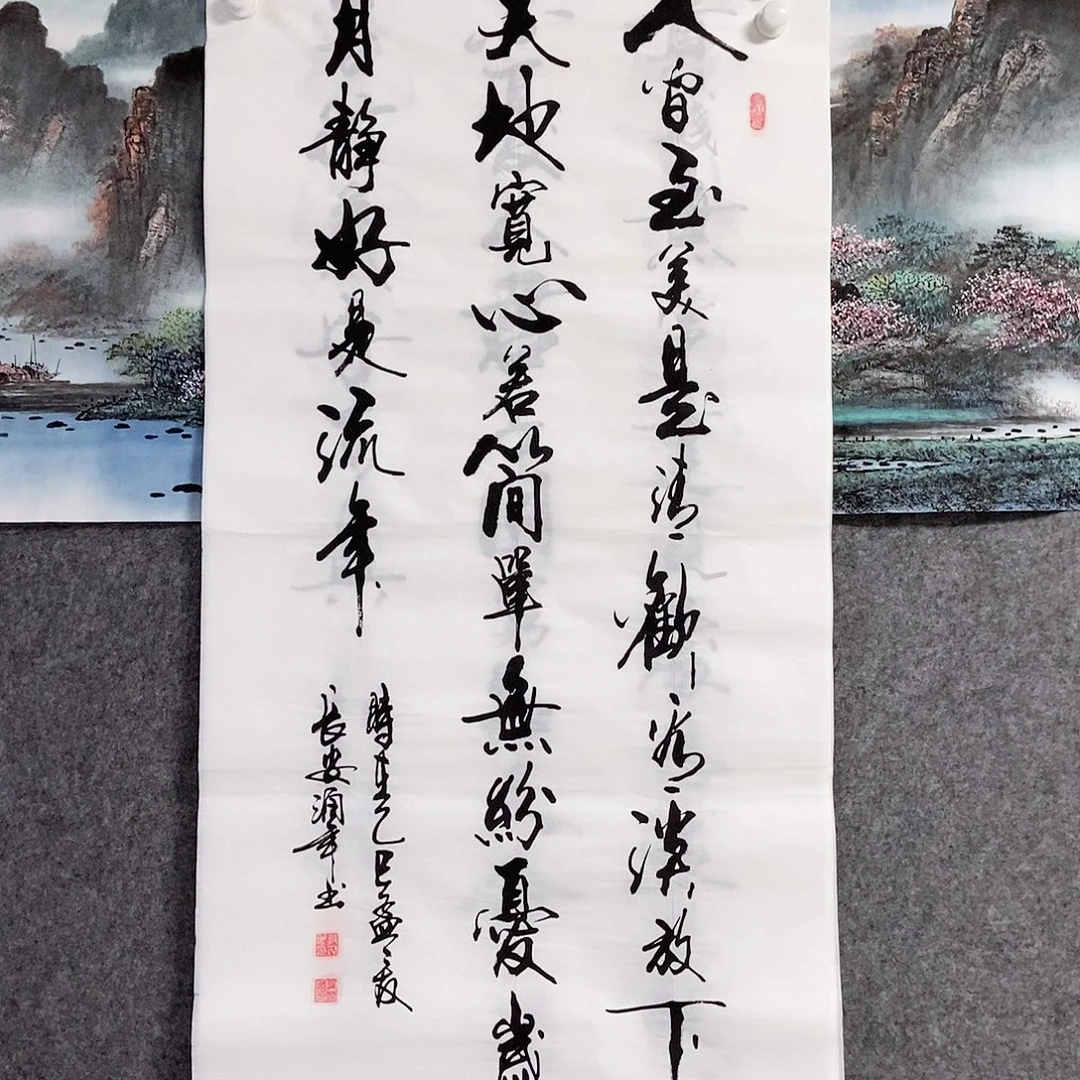 人間至美是清歡看淡放下
天地寬心若簡單無紛憂歲
月靜好是流年
時在乙巳孟夏
長安書